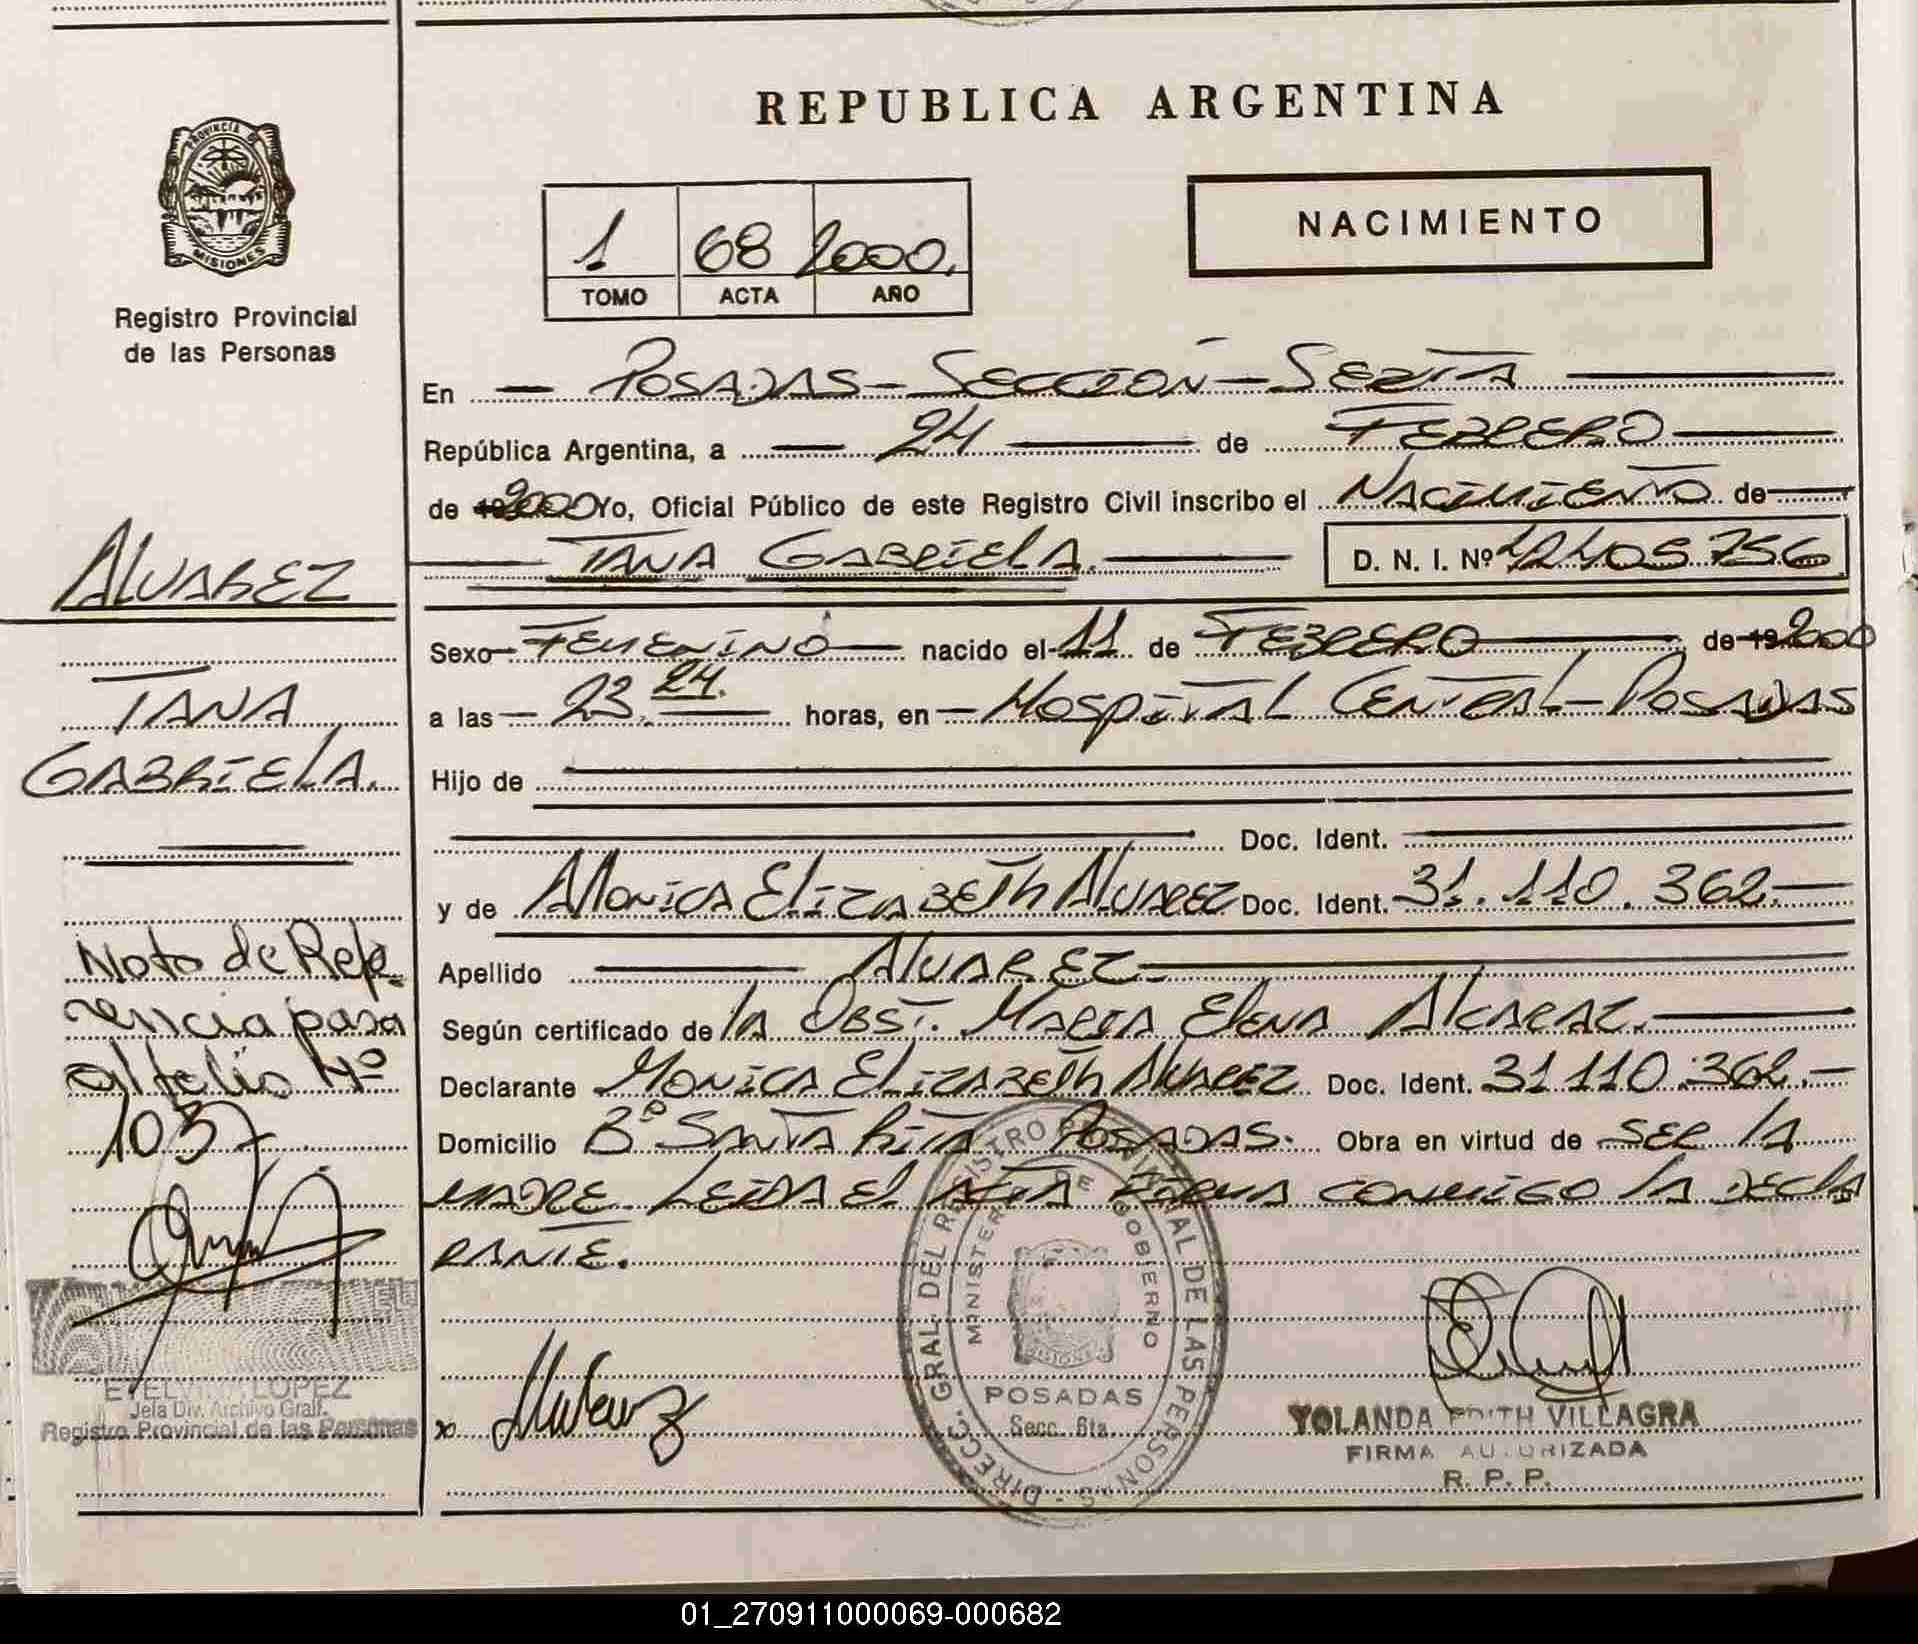 REPUBLICA ARGENTINA
PROVINCIA DE
MISIONES
Registro Provincial
de las Personas
1 68 2000.
TOMO ACTA AÑO
NACIMIENTO
En POSADAS - SECCIÓN - SEXTA
República Argentina, a 24 de FEBRERO
de 2000 Yo, Oficial Público de este Registro Civil inscribo el NACIMIENTO de
TANA GABRIELA. D. N. I. Nº 42.405.756
Sexo FEMENINO nacido el 11 de FEBRERO de 19 2000
a las 23.24. horas, en HOSPITAL CENTRAL - POSADAS
Hijo de
Doc. Ident.
y de MONICA ELIZABETH ALVAREZ Doc. Ident. 31.110.362.
Apellido ALVAREZ
Según certificado de la OBST. MARIA ELENA ALCARAZ.
Declarante MONICA ELIZABETH ALVAREZ Doc. Ident. 31 110.362.
Domicilio Bº SANTA RITA POSADAS. Obra en virtud de SER LA
MADRE. LEIDA EL ACTA FIRMA CONMIGO LA DECLA
RANTE.
ALVAREZ
TANA
GABRIELA.
Nota de Refe
rencia pasa
al folio Nº
103
ETELVINA LOPEZ
Jefa Div. Archivo Gral.
Registro Provincial de las Personas
DIRECC. GRAL DEL REGISTRO PROVINCIAL DE LAS PERSONAS
MINISTERIO DE GOBIERNO
MISIONES
POSADAS
Secc. 6ta.
YOLANDA EDITH VILLAGRA
FIRMA AUTORIZADA
R. P. P.
01_270911000069-000682